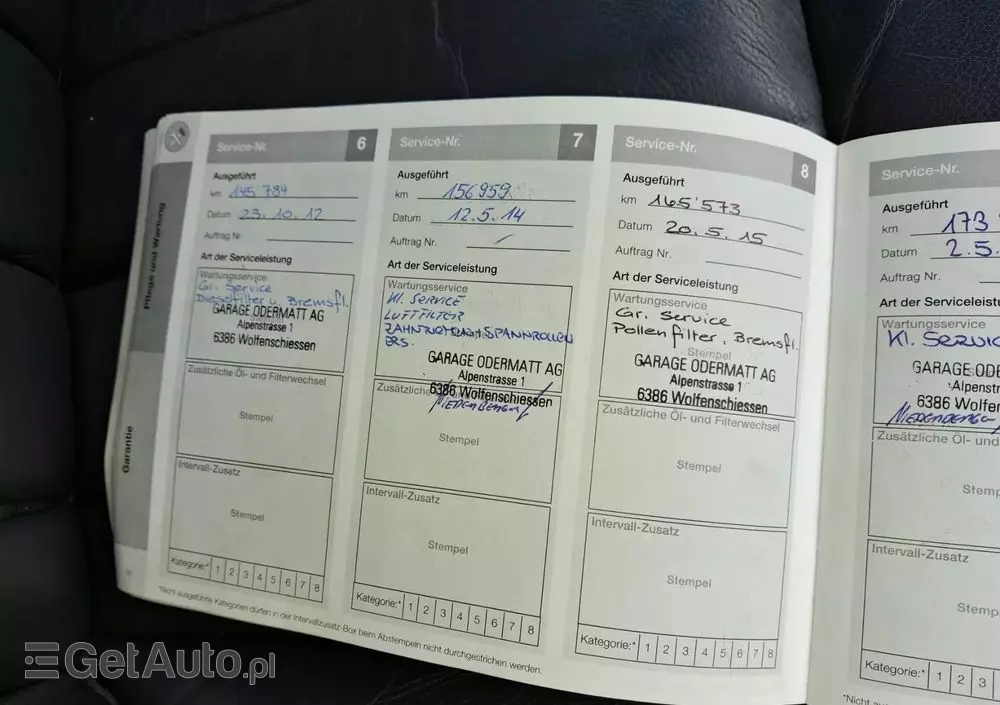 Pflege und Wartung
Garantie
Service-Nr. 6
Ausgeführt
km 145'784
Datum 23.10.12
Auftrag Nr.
Art der Serviceleistung
Wartungsservice
Gr. Service
Dieselfilter u. Bremsfl.
GARAGE ODERMATT AG
Alpenstrasse 1
6386 Wolfenschiessen
Zusätzliche Öl- und Filterwechsel
Stempel
Intervall-Zusatz
Stempel
Kategorie:* 1 2 3 4 5 6 7 8
Service-Nr. 7
Ausgeführt
km 156959
Datum 12.5.14
Auftrag Nr.
Art der Serviceleistung
Wartungsservice
Kl. SERVICE
LUFTFILTER
ZAHNRIEMEN+SPANNROLLEN
ERS.
GARAGE ODERMATT AG
Alpenstrasse 1
6386 Wolfenschiessen
Zusätzliche
Stempel
Intervall-Zusatz
Stempel
Kategorie:* 1 2 3 4 5 6 7 8
Service-Nr. 8
Ausgeführt
km 165'573
Datum 20.5.15
Auftrag Nr.
Art der Serviceleistung
Wartungsservice
Gr. Service
Pollenfilter, Bremsfl.
Stempel
GARAGE ODERMATT AG
Alpenstrasse 1
6386 Wolfenschiessen
Zusätzliche Öl- und Filterwechsel
Stempel
Intervall-Zusatz
Stempel
Kategorie:* 1 2 3 4 5 6 7 8
*Nicht ausgeführte Kategorien dürfen in der Intervallzusatz-Box beim Abstempeln nicht durchgestrichen werden.
Service-Nr.
Ausgeführt
km 173
Datum 2.5.
Auftrag Nr.
Art der Serviceleistu
Wartungsservice
Kl. SERVIC
GARAGE ODE
Alpenst
6386 Wolf
Zusätzliche Öl- und
Stemp
Intervall-Zusatz
Stemp
Kategorie:* 1 2 3
*Nicht aus
GetAuto.pl